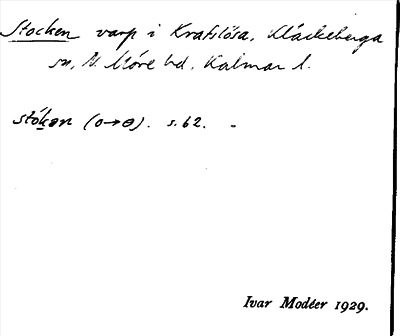 Stocken varp i Krafslösa, Kläckeberga
sn, N. Möre hd, Kalmar l.
stók̠ən (o→ɵ). s. 62. -
Ivar Modéer 1929.